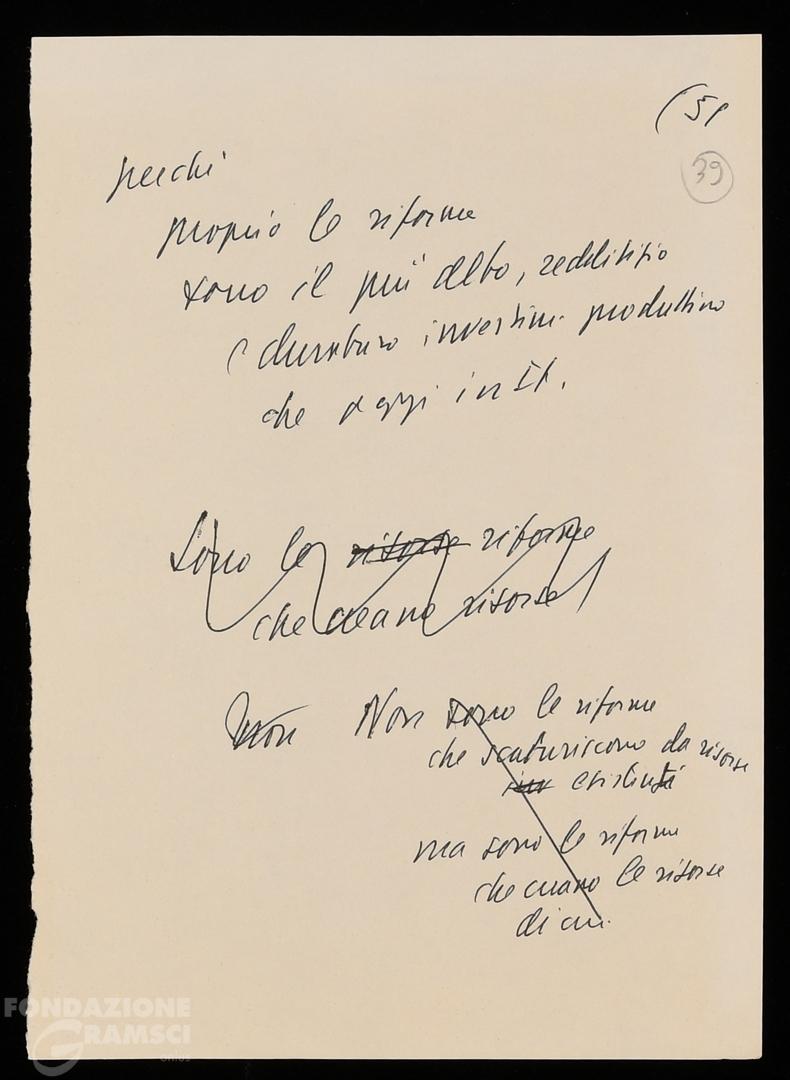 (51
39
perché
proprio le riforme
sono il più alto, redditizio
e duraturo investim. produttivo
che oggi in It.
Sono le risorse riforme
che creano risorse
Non Non sono le riforme
che scaturiscono da risorse
esistenti
ma sono le riforme
che creano le risorse
di cui
FONDAZIONE
GRAMSCI
onlus